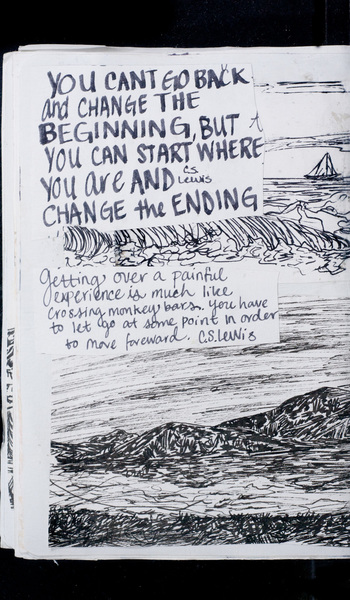 YOU CANT GO BACK
and CHANGE THE
BEGINNING, BUT
YOU CAN START WHERE
YOU are AND C.S. Lewis
CHANGE the ENDING
Getting over a painful
experience is much like
crossing monkey bars. you have
to let go at some point in order
to move foreward. C.S. LeWis